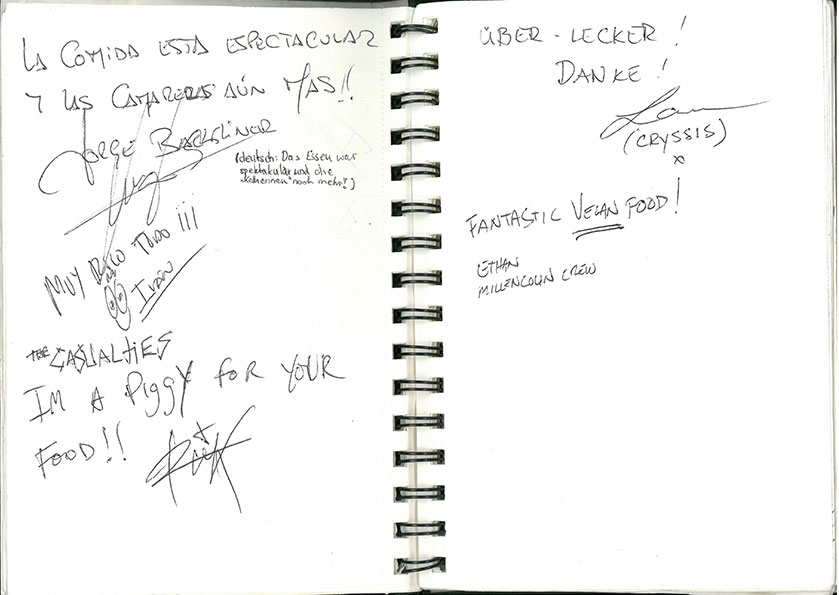 LA COMIDA ESTA ESPECTACULAR
Y LAS CAMARERAS AÚN MAS!!
JORGE
(deutsch: Das Essen war
spektakulär und die
noch mehr!)
MUY RICO TODO !!!
Iván
THE CASUALTIES
IM A PIGGY FOR YOUR
FOOD!!
RICK
ÜBER-LECKER!
DANKE!
(CRYSSIS)
x
FANTASTIC VEGAN FOOD!
ETHAN
MILLENCOLIN CREW